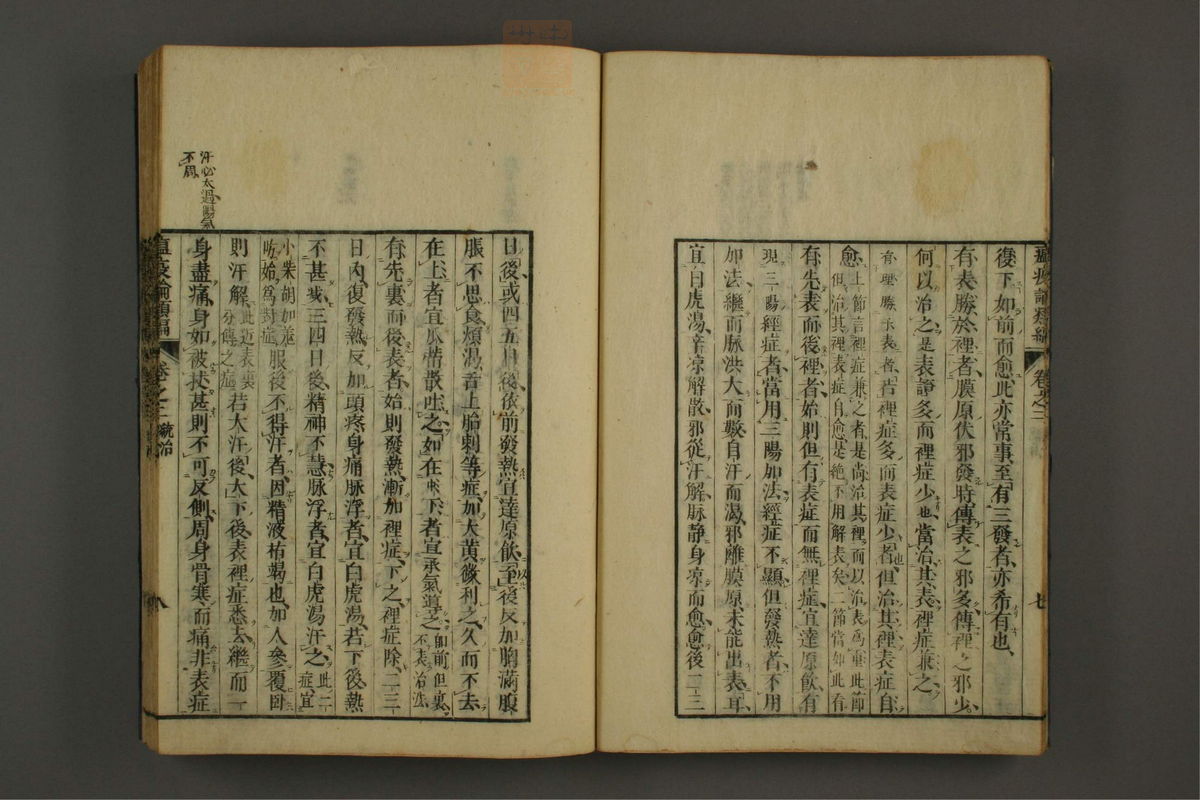 瘟疫論類編 卷之二 七
復下如前而愈此亦常事至有三發者亦希有也
有表勝於裡者膜原伏邪發時傳表之邪多傳裡之邪少
何以治之是表證多而裡症少也當治其表裡症兼之
有裡勝于表者若裡症多而表症少者但治其裡表症自
愈上節言裡症兼之者是尚治其裡而以治表爲重此節
但治其裡表症自愈是絶不用解表矣二節當如此看
有先表而後裡者始則但有表症而無裡症宜達原飲有
現三陽經症者當用三陽加法經症不顯但發熱者不用
加法繼而脉洪大而數自汗而渴邪離膜原未能出表耳
宜白虎湯辛凉解散邪從汗解脉静身凉而愈愈後二三
日後或四五日後依前發熱宜達原飲至後反加胸滿腹
脹不思食煩渴舌上胎刺等症加大黄微利之久而不去
在上者宜瓜蒂散吐之如在下者宜承氣導之即前但裏
不表治法
有先裏而後表者始則發熱漸加裡症下之裡症除二三
日内復發熱反加頭疼身痛脉浮者宜白虎湯若下後熱
不甚或三四日後精神不慧脉浮者宜白虎湯汗之此二
症宜
小柴胡加姜
始爲對症服後不得汗者因精液枯竭也加人參覆卧
則汗解此近表裏
分傳之症若大汗後大下後表裡症悉去繼而一
身盡痛身如被杖甚則不可反側周身骨寒而痛非表症
瘟疫論類編 卷之二 統治 八
汗必太過陽氣
不周